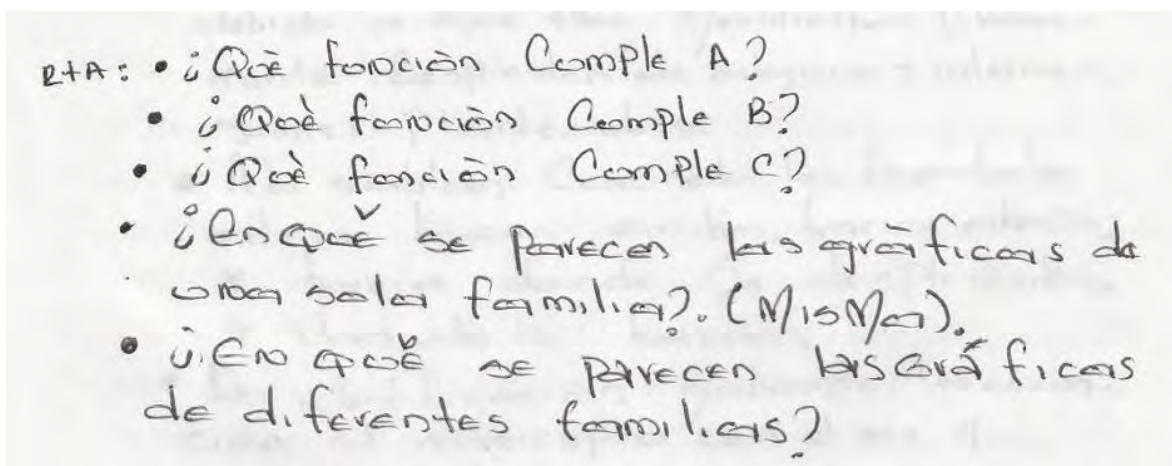 R+A: • ¿Què función Cumple A?
• ¿Què función Cumple B?
• ¿Què función Cumple C?
• ¿En què se parecen las gràficas de
una sola familia?. (MisMa).
• ¿En què se parecen las Gráficas
de diferentes familias?